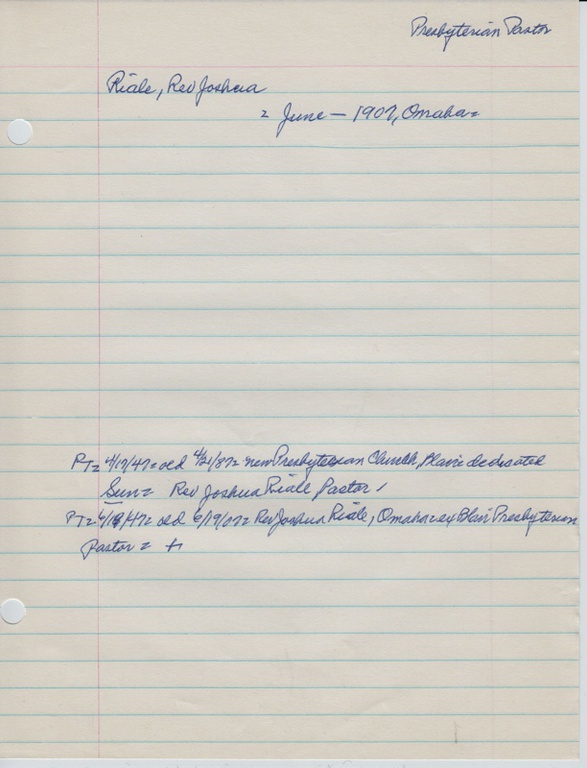 Presbyterian Pastor
Riale, Rev Joshua
= June - 1907, Omaha =
PT= 4/17/47= old 4/21/87= new Presbyterian Church, Blair dedicated
Sun= Rev Joshua Riale Pastor /
PT= 6/18/47= old 6/19/07= Rev Joshua Riale, Omaha= ex Blair Presbyterian
Pastor = +